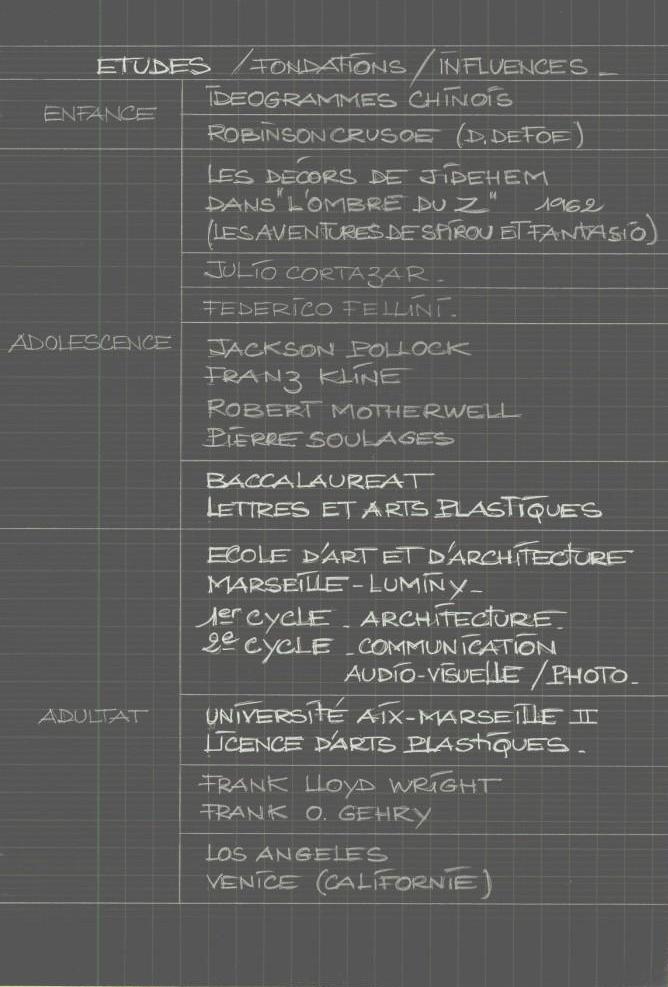 ETUDES / FONDATIONS / INFLUENCES _
ENFANCE
IDEOGRAMMES CHINOIS
ROBINSON CRUSOE (D. DEFOE)
ADOLESCENCE
LES DECORS DE JIDEHEM
DANS "L'OMBRE DU Z" 1962
(LES AVENTURES DE SPIROU ET FANTASIO)
JULIO CORTAZAR.
FEDERICO FELLINI.
JACKSON POLLOCK
FRANZ KLINE
ROBERT MOTHERWELL
PIERRE SOULAGES
BACCALAUREAT
LETTRES ET ARTS PLASTIQUES
ADULTAT
ECOLE D'ART ET D'ARCHITECTURE
MARSEILLE-LUMINY_
1er CYCLE _ ARCHITECTURE_
2e CYCLE _ COMMUNICATION
AUDIO-VISUELLE / PHOTO_
UNIVERSITÉ AIX-MARSEILLE II
LICENCE D'ARTS PLASTIQUES.
FRANK LLOYD WRIGHT
FRANK O. GEHRY
LOS ANGELES
VENICE (CALIFORNIE)